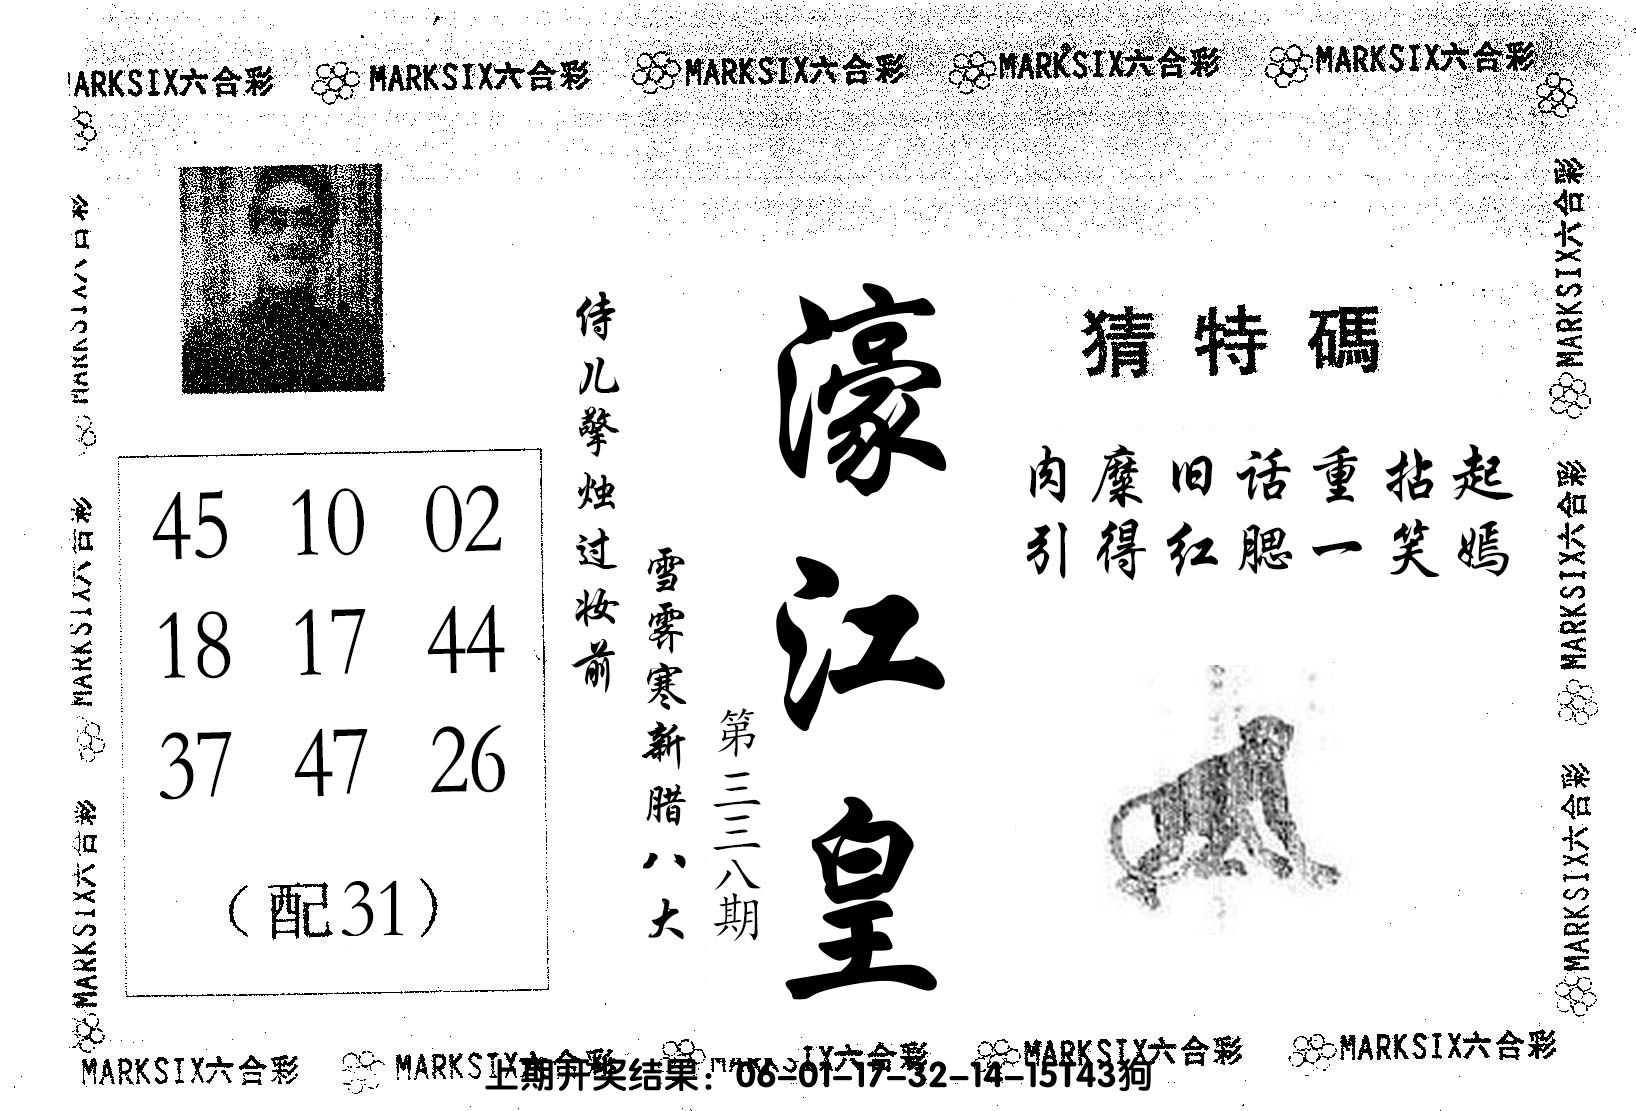 MARKSIX六合彩 MARKSIX六合彩 MARKSIX六合彩 MARKSIX六合彩 MARKSIX六合彩
猜特碼
肉糜旧话重拈起
引得红腮一笑嫣
濠江皇
第三三八期
雪霁寒新腊八大
侍儿擎烛过妆前
45 10 02
18 17 44
37 47 26
（配31）
MARKSIX六合彩
MARKSIX六合彩
MARKSIX六合彩
MARKSIX六合彩
MARKSIX六合彩
MARKSIX六合彩
MARKSIX六合彩 MARKSIX六合彩 MARKSIX六合彩 MARKSIX六合彩 MARKSIX六合彩
上期开奖结果：06-01-17-32-14-15T43狗